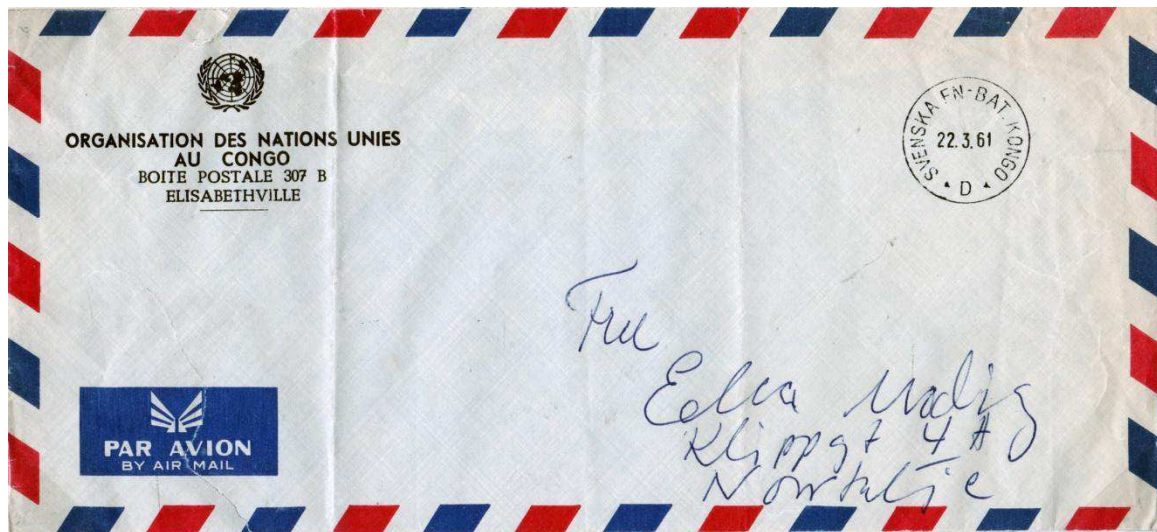 ORGANISATION DES NATIONS UNIES
AU CONGO
BOITE POSTALE 307 B
ELISABETHVILLE
SVENSKA FN-BAT. KONGO
22.3.61
D
Fru
Edla
Klippgt 4 A
Norrtelje
PAR AVION
BY AIR MAIL